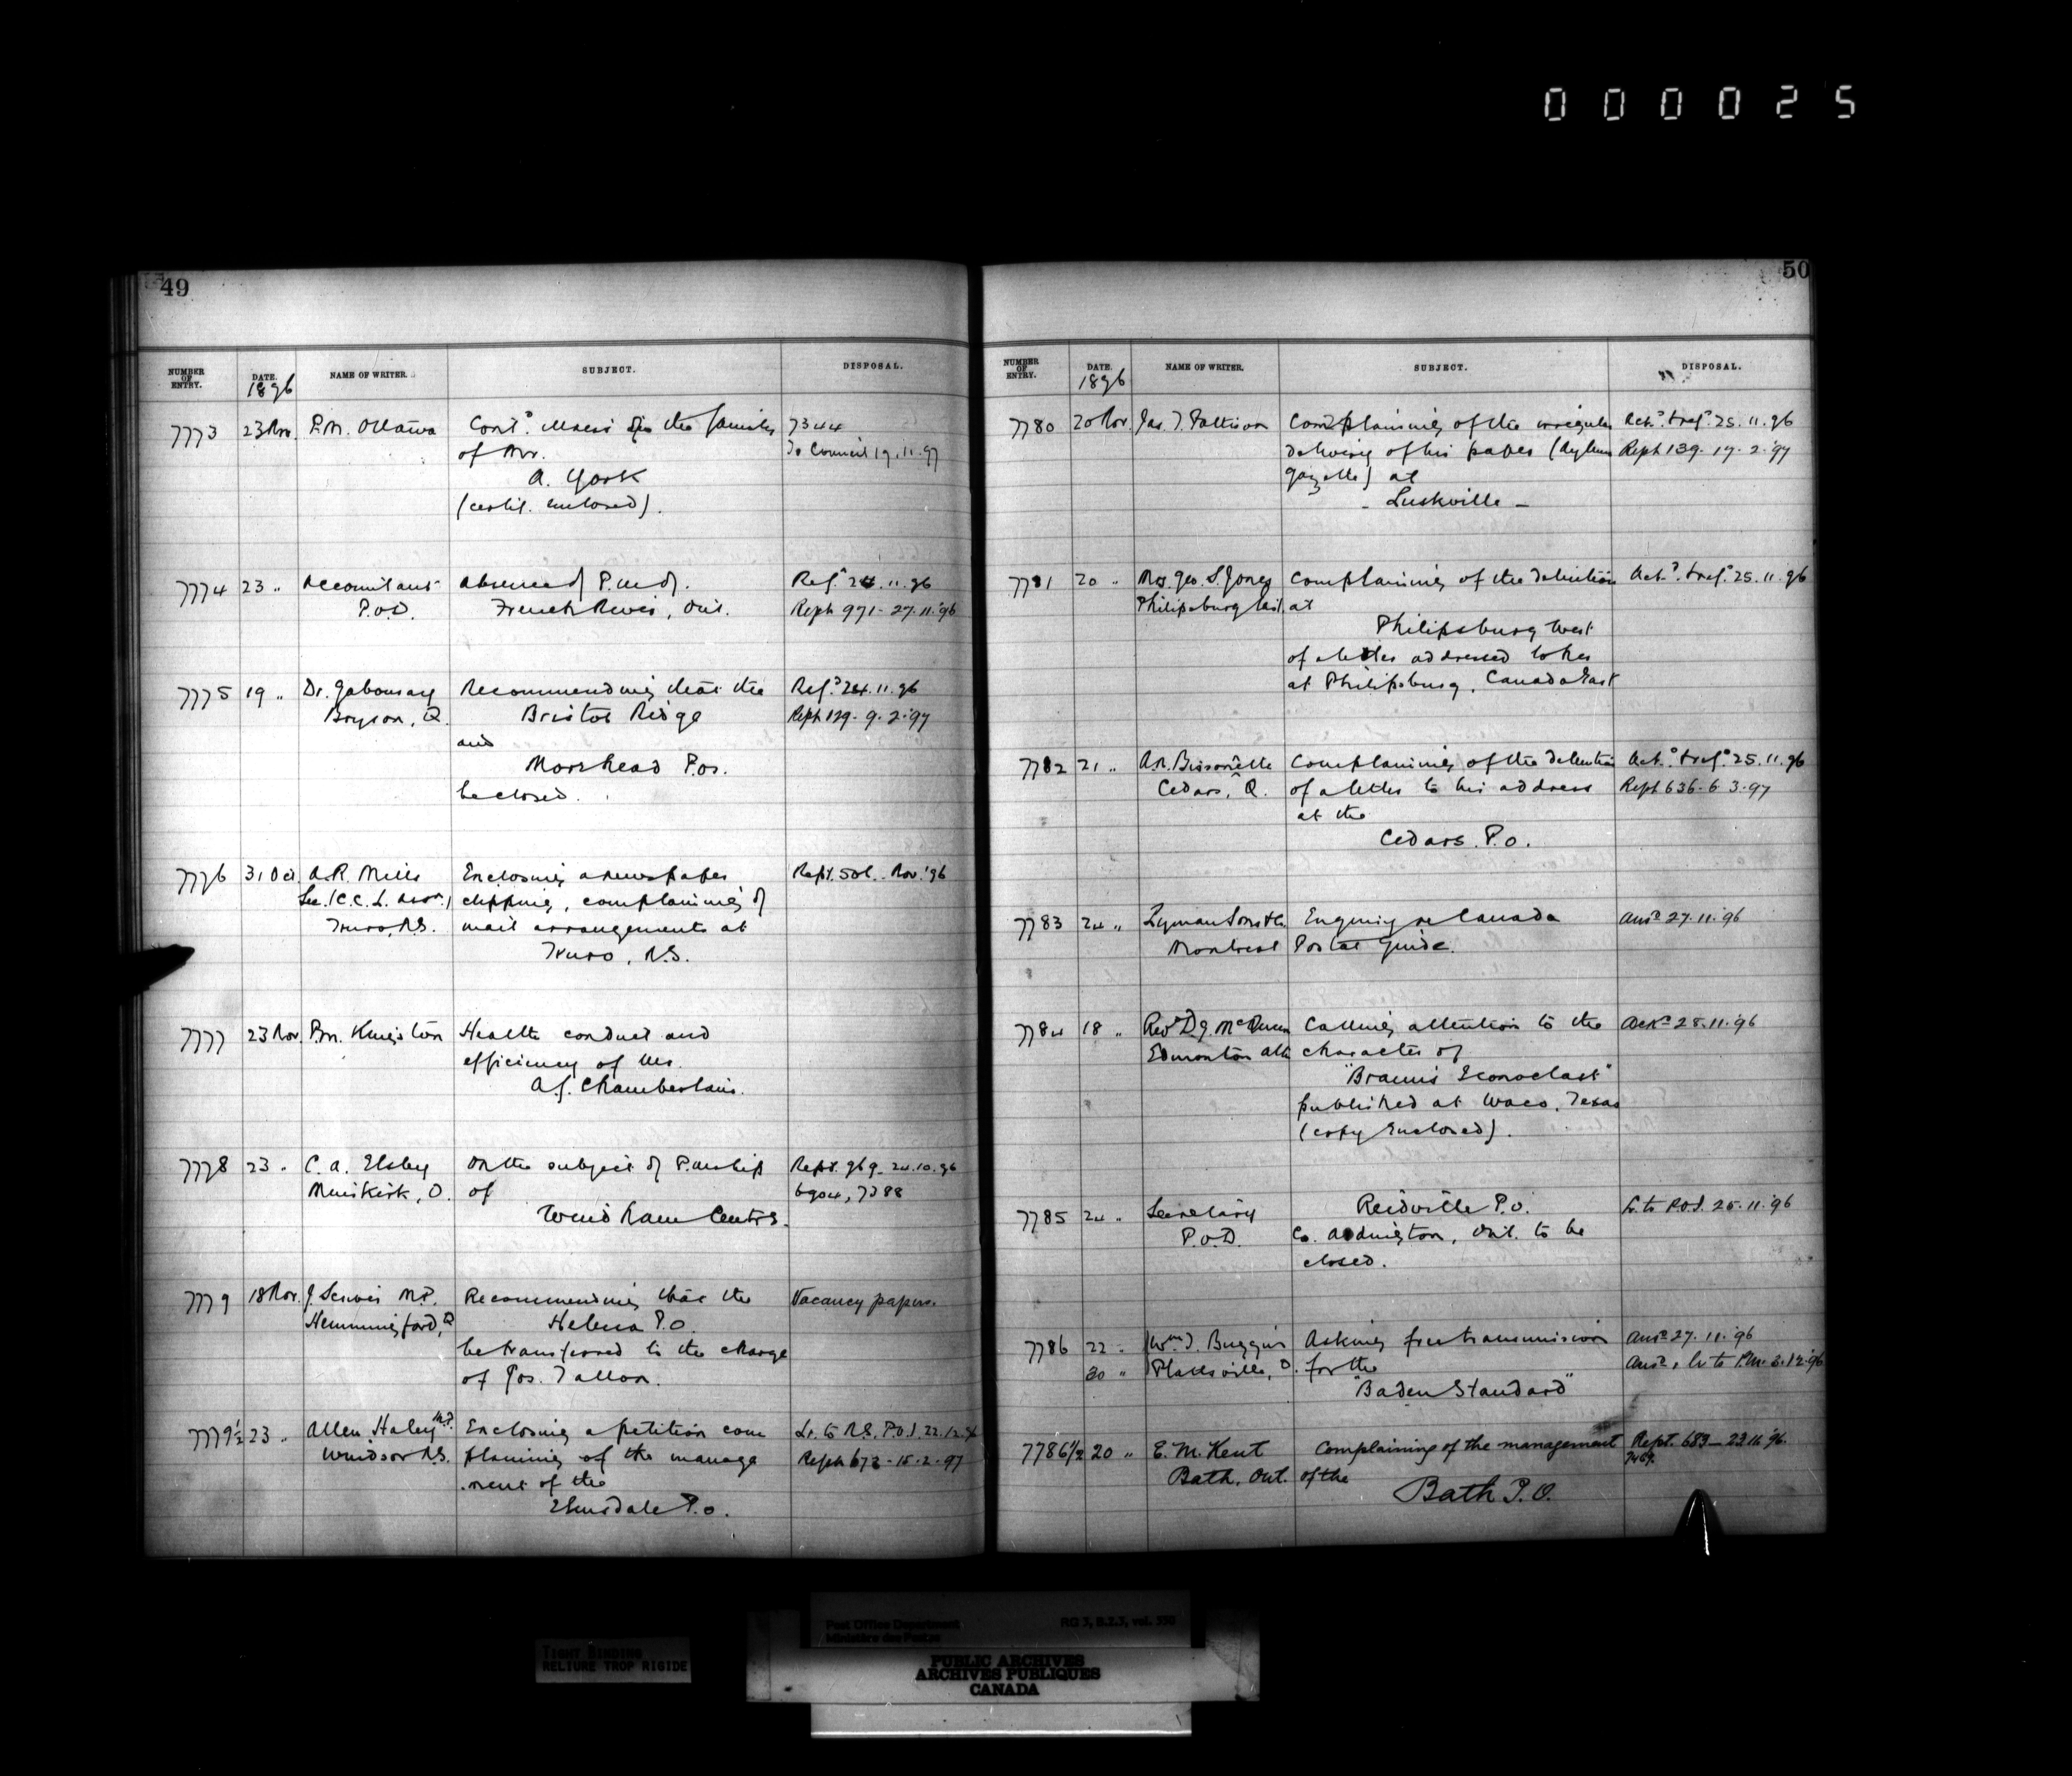 000025
49
NUMBER OF ENTRY. DATE. 1896 NAME OF WRITER. SUBJECT. DISPOSAL.
7773 23 Nov. P.M. Ottawa Cont. the families 7344
of Mr. To Council 19.11.97
A. York
(certif. enclosed).
7774 23 " Accountant Absence of P.M. of Ref.d 24.11.96
P.O.D. French River, Ont. Rept 971 - 27.11.96
7775 19 " Dr. Gaboury Recommending that the Ref.d 24.11.96
Bryson, Q. Bristol Ridge Rept 129 - 9.2.97
and
Moorhead P.Os.
be closed.
7776 31 Oct. A.R. Mills Enclosing a newspaper Rept. 501 - Nov. '96
Sec. (C.C.L. Assn.) clipping, complaining of
Truro, N.S. mail arrangements at
Truro, N.S.
7777 23 Nov. P.M. Kingston Health conduct and
efficiency of Mr.
A.J. Chamberlain.
7778 23 " C.A. Elsbey On the subject of P.M.ship Rept. 969 - 24.10.96
O. of 6904, 7388
Windham Centre.
7779 18 Nov. J. Scriver M.P. Recommending that the Vacancy papers.
Hemmingford, Q Helena P.O.
be transferred to the charge
of Jos. Tallon.
7779½ 23 " Allen Haley M.P. Enclosing a petition com L. to N.S. P.O.I. 22.12.96
Windsor N.S. plaining of the manage Rept 673 - 15.2.97
ment of the
Elmsdale P.O.
50
NUMBER OF ENTRY. DATE. 1896 NAME OF WRITER. SUBJECT. DISPOSAL.
7780 20 Nov. Jas. T. Pattison Complaining of the irregular Ack.d & ref.d 25.11.96
delivery of his paper (Aylmer Rept 139. 17.2.97
Gazette) at
- Luskville -
7781 20 " Mrs. Geo. S. Jones Complaining of the detention Ack.d & ref.d 25.11.96
Philipsburg East, at
Philipsburg West
of a letter addressed to her
at Philipsburg, Canada East
7782 21 " A.R. Bissonette Complaining of the detention Ack.d & ref.d 25.11.96
Cedars, Q. of a letter to his address Rept 636 - 6.3.97
at the
Cedars P.O.
7783 24 " Lyman Sons & Co. Enquiry re Canada Ansd 27.11.96
Montreal Postal Guide.
7784 18 " Revd D.G. McQueen Calling attention to the Ackd 28.11.96
Edmonton Alta character of
"Brann's Iconoclast"
published at Waco, Texas
(copy enclosed).
7785 24 " Secretary Reidville P.O. L. to P.O.I. 25.11.96
P.O.D. Co. Addington, Ont. to be
closed.
7786 22 " Wm. J. Buggins Asking free transmission Ansd 27.11.96
30 " Plattsville, O. for the Ansd, L. to P.M. 3.12.96
"Baden Standard"
7786½ 20 " E. M. Kent Complaining of the management Rept. 683 - 23.11.96.
Bath, Ont. of the 7469.
Bath P.O.
Post Office Department RG 3, B.Z.3, vol. 350
Ministère des Postes
TIGHT BINDING
RELIURE TROP RIGIDE
PUBLIC ARCHIVES
ARCHIVES PUBLIQUES
CANADA